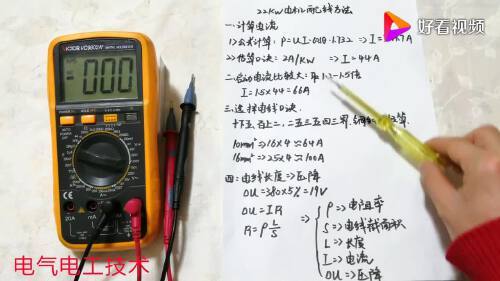 好看视频
22KW电机配线方法
一、计算电流
1>公式计算: P=UI·0.8·1.732 ⇒ I=41.7A
2>估算口决: 2A/KW ⇒ I=44A
二、启动电流比较大: 取1.3-1.5倍
I=1.5×44=66A
三、选择电线口决
十下五、百上二、二五三五四三界、
10mm² ⇒ 10×4 ⇒ 64A
16mm² ⇒ 25×4 ⇒ 100A
四: 电线长度 ⇒ 压降
OU=380×5%=19V
OU=IR
R=ρL/S
⇒
ρ ⇒ 电阻率
S ⇒ 电线截面积
L ⇒ 长度
I ⇒ 电流
OU ⇒ 压降
VICTOR VC9800A+
000
20A
mA
COM
电气电工技术